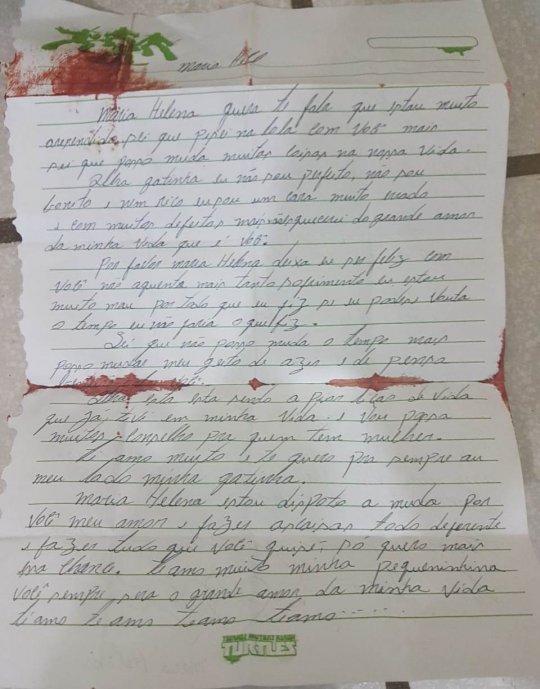 Maria Helena queria te fala que estou muito
arependido, sei que pisei na bola com você mais
sei que posso muda muitas coisas na nossa Vida.
Olha gatinha eu não sou perfeito, não sou
bonito e nem rico eu sou um cara muito errado
e com muitos defeitos mais do grande amor
da minha Vida que é Você.
Por favor maria Helena deixa eu ser feliz com
Você não aguento mais tanto sofrimento eu estou
muito mau por tudo que eu fiz se eu podese Vouta
o tempo eu não faria o que fiz.
Sei que não posso muda o tempo mais
posso mudar meu geito de azer e de pensa
Olha esta esta sendo a pior liças de Vida
que Já tive em minha Vida. e Vou passa
muitos conselhos pra quem tem mulher.
ti amo muito e te quero pra sempre au
meu lado minha gatinha.
Maria Helena estou disposto a muda por
Você meu amor e fazer as coisas todo deferente
e fazer tudo que Você quiser, só quero mais
uma chance. te amo muito minha pequenininha
Você sempre sera o grande amor da minha Vida
ti amo te amo te amo te amo.....
TEENAGE MUTANT NINJA
TURTLES